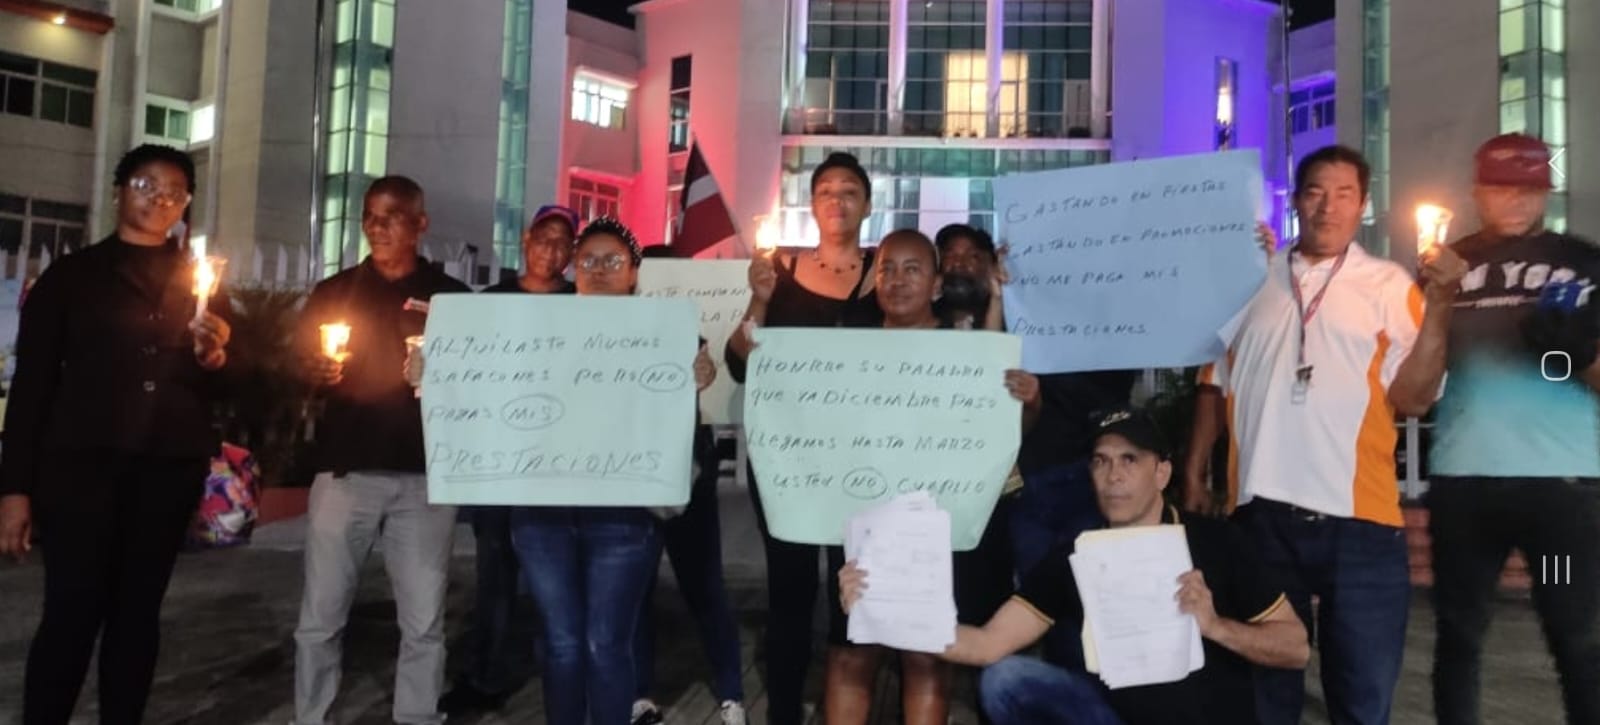 ALQUILASTE MUCHOS
SAFACONES PERO NO
PAGAS MIS
PRESTACIONES
LA P
HONRRE SU PALABRA
QUE YA DICIEMBRE PASO
LLEGAMOS HASTA MARZO
USTED NO CUMPLIO
GASTANDO EN FIESTAS
GASTANDO EN PROMOCIONES
Y NO ME PAGA MIS
PRESTACIONES